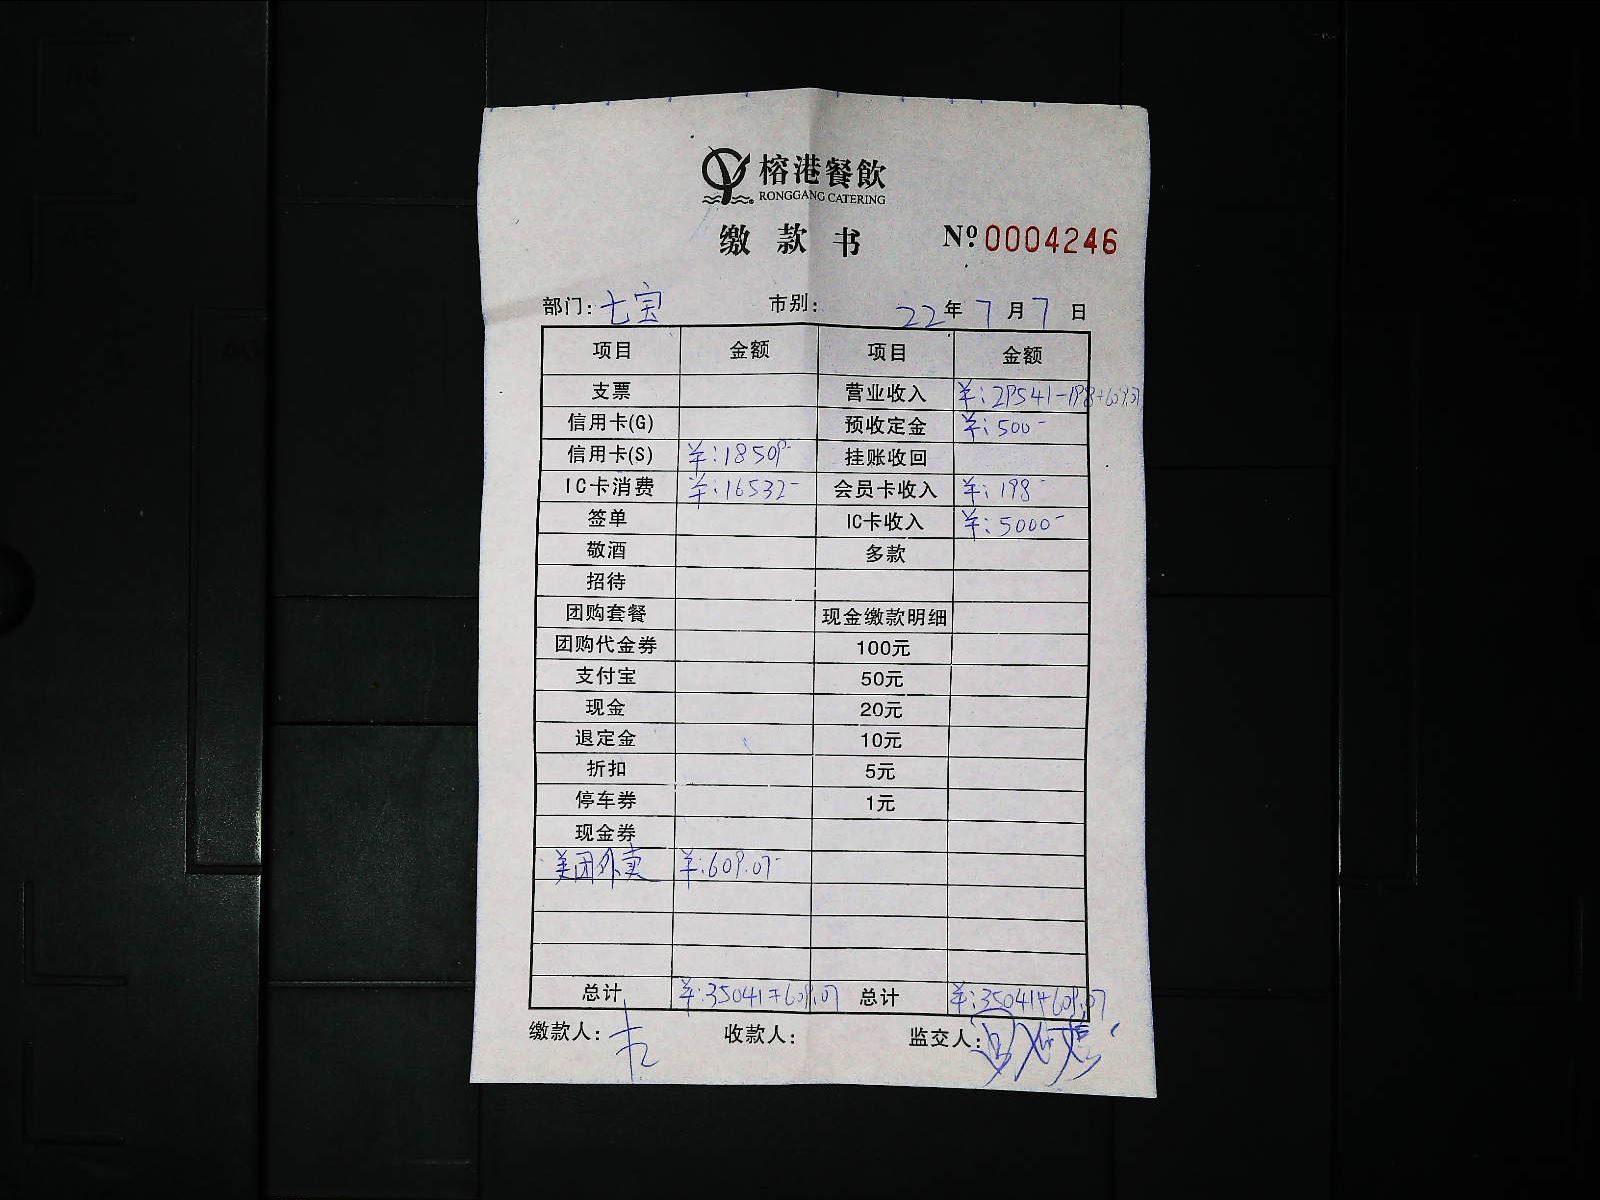 榕港餐飲
RONGGANG CATERING
缴款书 Nº 0004246
部门: 七宝 市别: 22年 7月 7日
项目 金额 项目 金额
支票 营业收入 羊:29541-198+609.07
信用卡(G) 预收定金 羊:500-
信用卡(S) 羊:18509- 挂账收回
IC卡消费 羊:16532- 会员卡收入 羊:198-
签单 IC卡收入 羊:5000-
敬酒 多款
招待
团购套餐 现金缴款明细
团购代金券 100元
支付宝 50元
现金 20元
退定金 10元
折扣 5元
停车券 1元
现金券
美团外卖 羊:609.07-
总计 羊:35041+609.07 总计 羊:35041+609.07
缴款人: 收款人: 监交人: